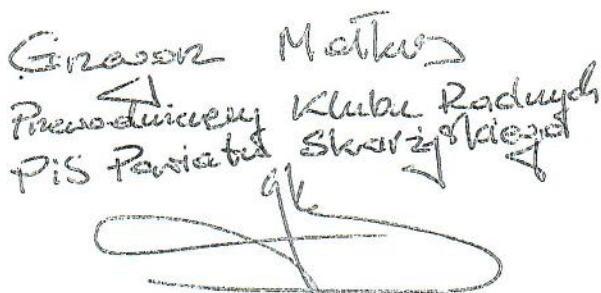 Grzegorz Małkus
Przewodniczący Klubu Radnych
PiS Powiatu Skarżyskiego